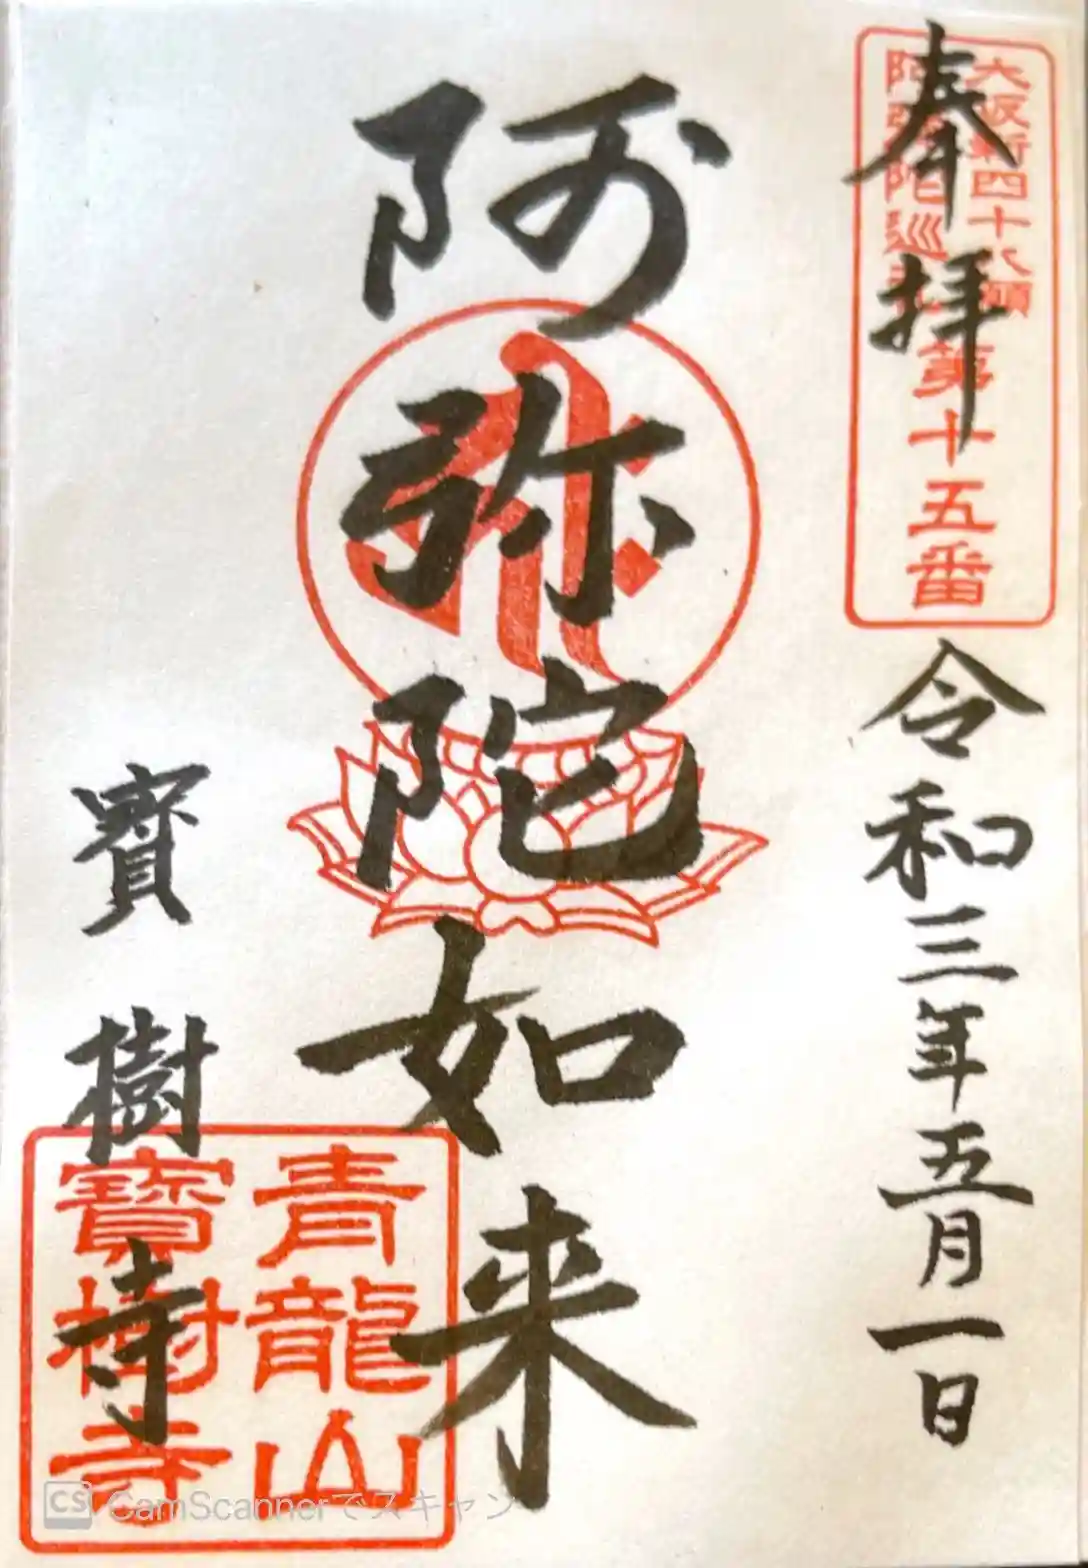 奉拝
大坂新四十八願
阿弥陀巡礼
第十五番
令和三年五月一日
阿弥陀如来
寶樹寺
青龍山
寶樹寺
CS CamScannerでスキャン